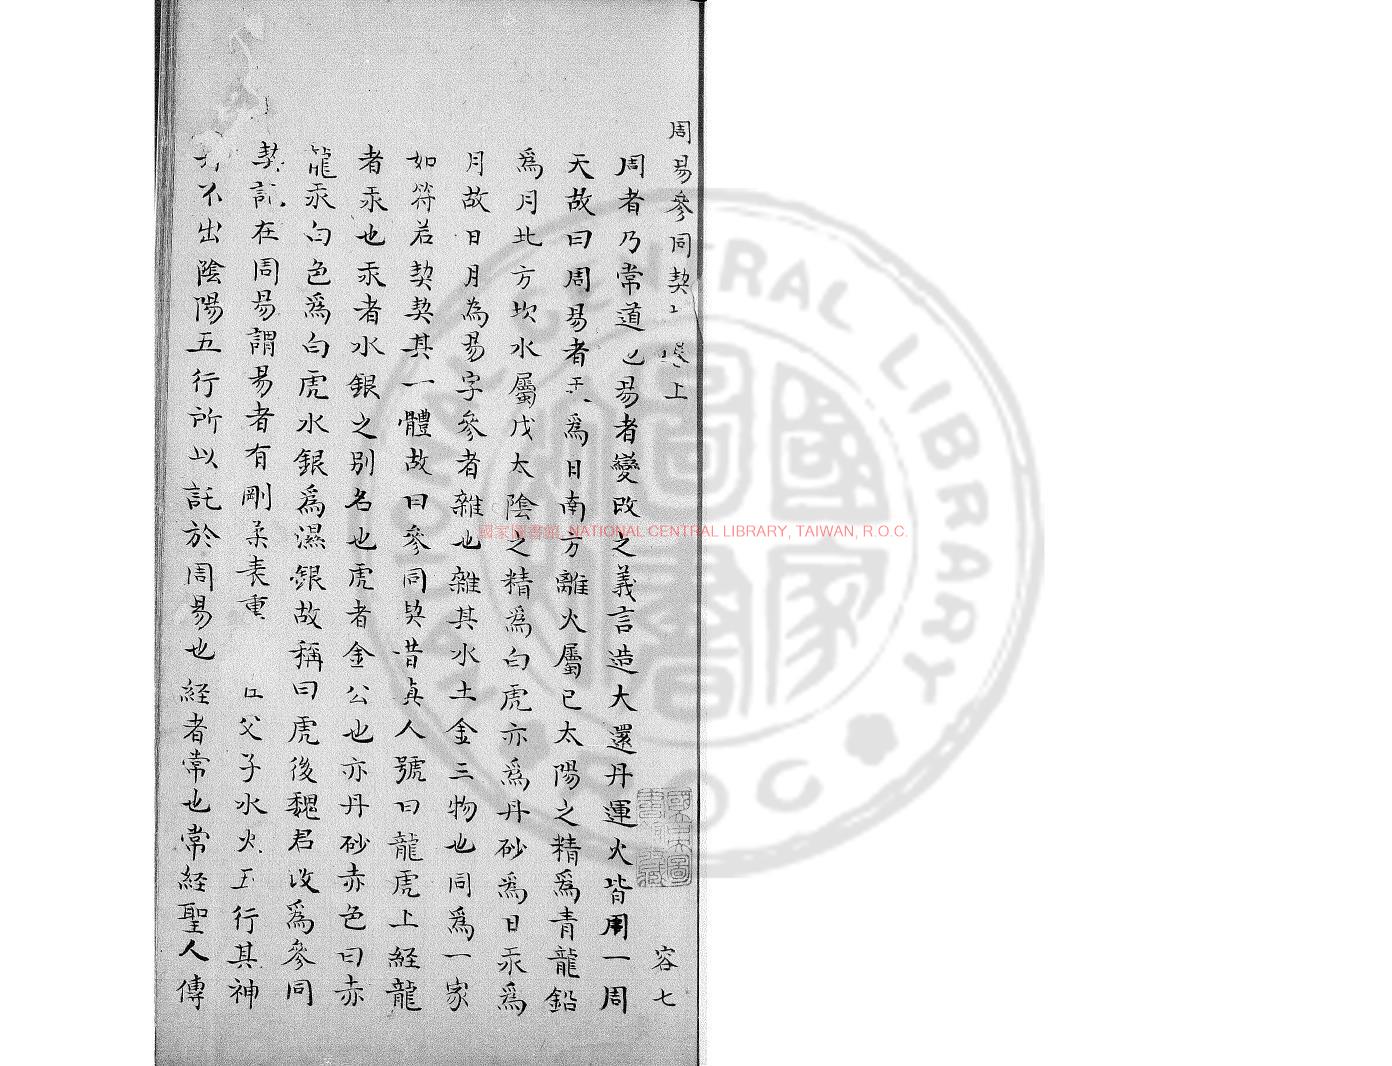 周易參同契 卷上 容七
周者乃常道也易者變改之義言造大還丹運火皆用一周
天故曰周易者天爲日南方離火屬己太陽之精爲青龍鉛
爲月北方坎水屬戊太陰之精爲白虎亦爲丹砂爲日汞爲
月故日月為易字參者雜也雜其水土金三物也同爲一家
如符若契契其一體故曰參同契昔真人號曰龍虎上經龍
者汞也汞者水銀之別名也虎者金公也亦丹砂赤色曰赤
龍汞白色爲白虎水銀爲濕銀故稱曰虎後魏君改爲參同
契託在周易謂易者有剛柔表重 父子水火五行其神
不出陰陽五行所以託於周易也経者常也常経聖人傳
國家圖書館, NATIONAL CENTRAL LIBRARY, TAIWAN, R.O.C.